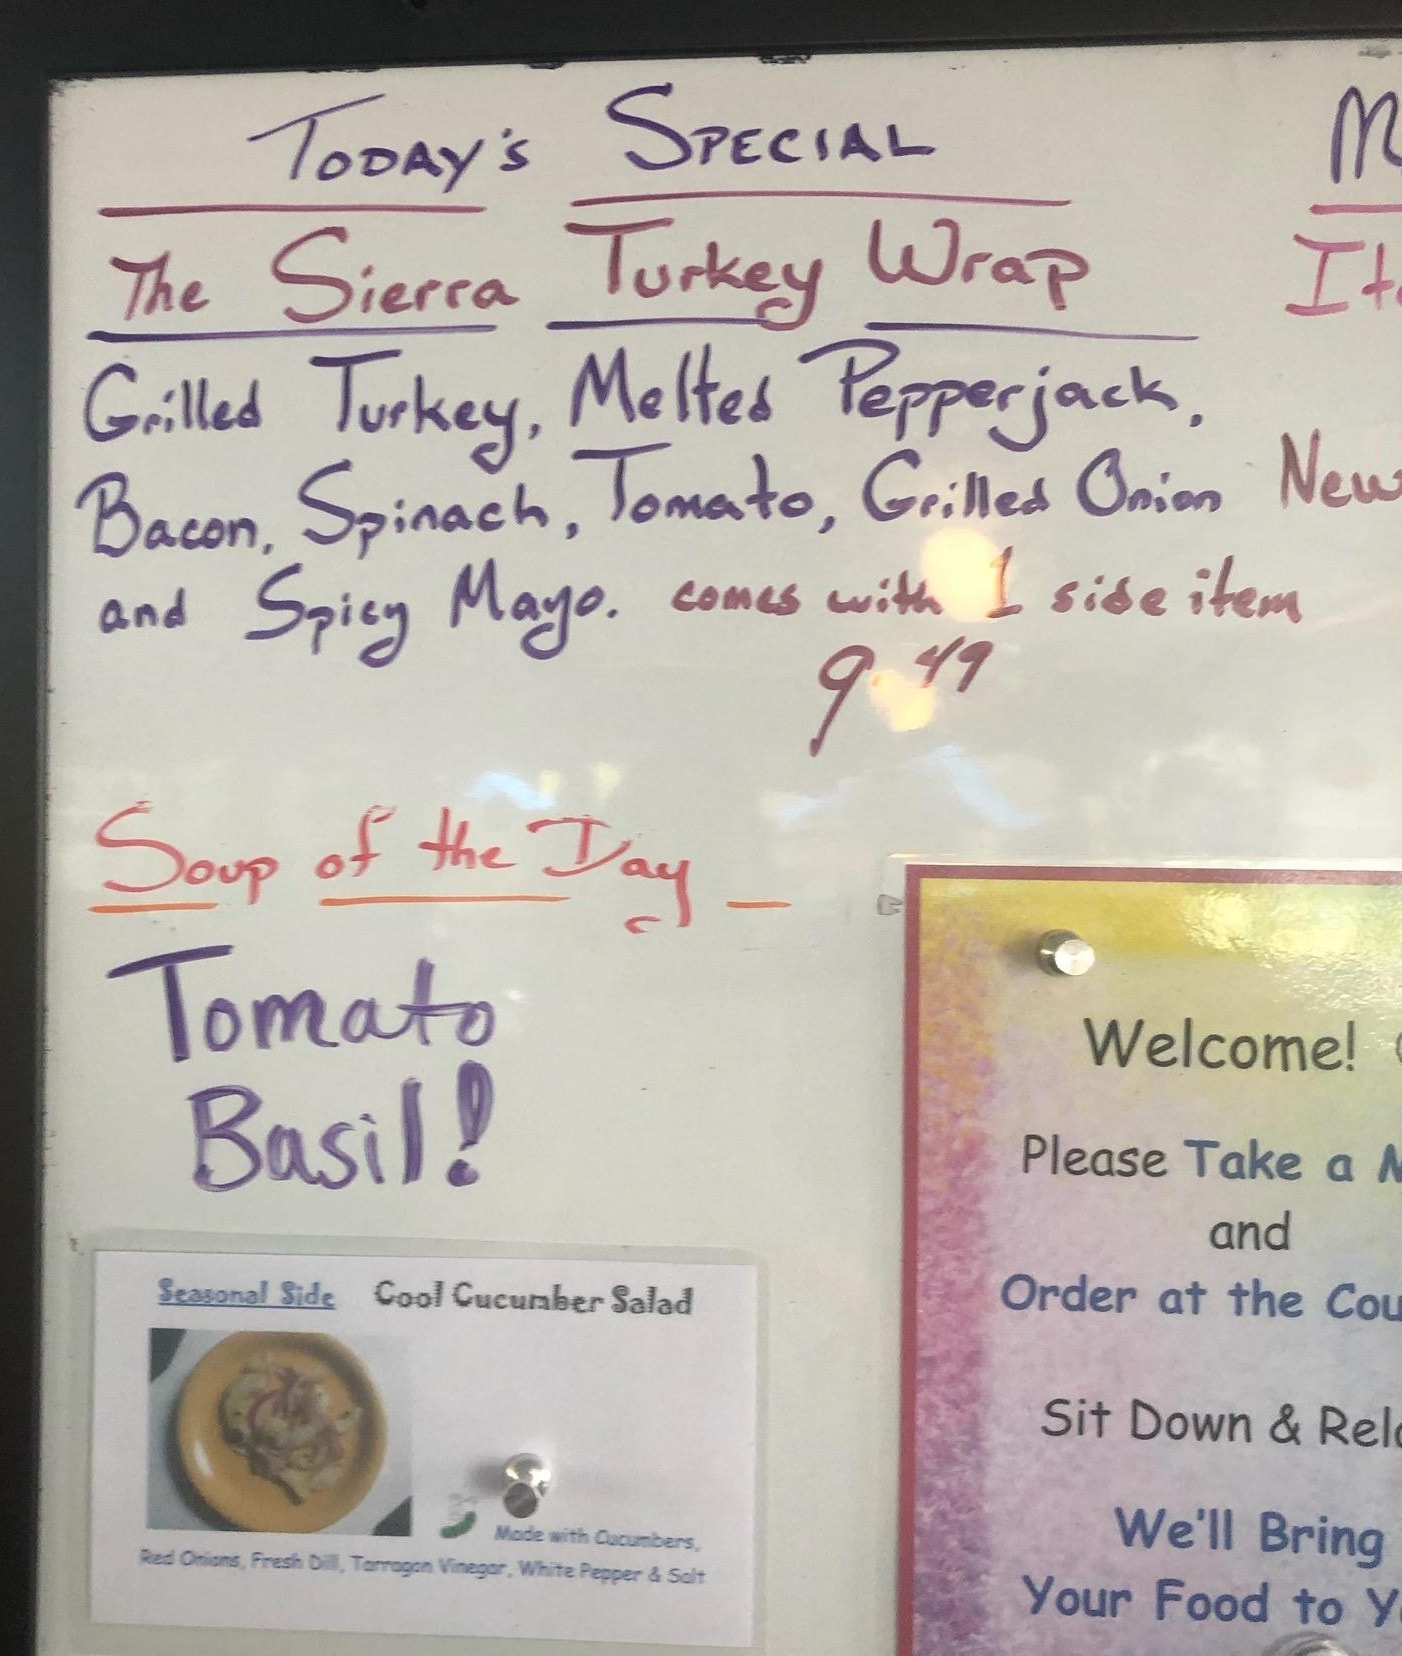 TODAY'S SPECIAL
The Sierra Turkey Wrap
Grilled Turkey, Melted Pepperjack,
Bacon, Spinach, Tomato, Grilled Onion
and Spicy Mayo. comes with 1 side item
9.49
Soup of the Day
Tomato
Basil!
Seasonal Side Cool Cucumber Salad
Made with Cucumbers,
Red Onions, Fresh Dill, Tarragon Vinegar, White Pepper & Salt
New
Welcome!
Please Take a
and
Order at the
Sit Down &
We'll Bring
Your Food to